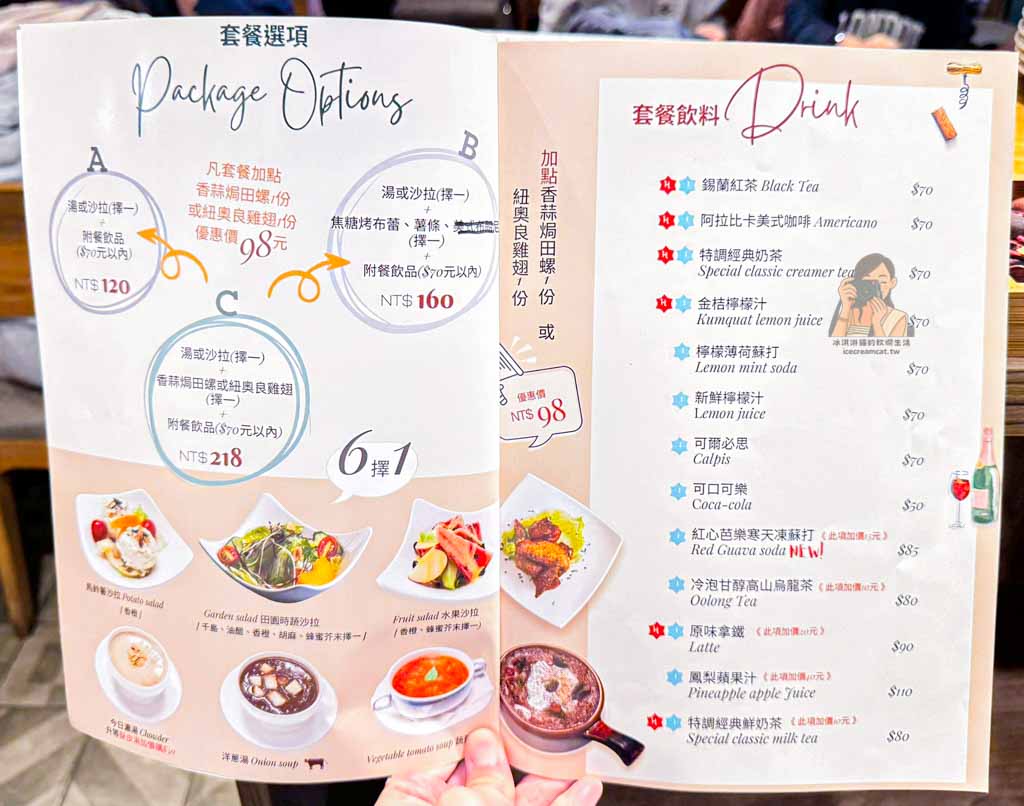 套餐選項
Package Options
A
湯或沙拉(擇一)
+
附餐飲品
($70元以內)
NT$ 120
凡套餐加點
香蒜焗田螺1份
或紐奧良雞翅1份
優惠價98元
B
湯或沙拉(擇一)
+
焦糖烤布蕾、薯條、
(擇一)
+
附餐飲品($70元以內)
NT$ 160
C
湯或沙拉(擇一)
+
香蒜焗田螺或紐奧良雞翅
(擇一)
+
附餐飲品($70元以內)
NT$ 218
6擇1
馬鈴薯沙拉 Potato salad
[香橙]
Garden salad 田園時蔬沙拉
[千島、油醋、香橙、胡麻、蜂蜜芥末擇一]
Fruit salad 水果沙拉
[香橙、蜂蜜芥末擇一]
今日濃湯 Chowder
洋蔥湯 Onion soup
Vegetable tomato soup
加點香蒜焗田螺1份 或
紐奧良雞翅1份
優惠價
NT$ 98
套餐飲料 Drink
H I 錫蘭紅茶 Black Tea $70
H I 阿拉比卡美式咖啡 Americano $70
H I 特調經典奶茶
Special classic creamer tea $70
H I 金桔檸檬汁
Kumquat lemon juice $70
冰淇淋貓的軟爛生活
icecreamcat.tw
I 檸檬薄荷蘇打
Lemon mint soda $70
I 新鮮檸檬汁
Lemon juice $70
I 可爾必思
Calpis $70
I 可口可樂
Coca-cola $50
I 紅心芭樂寒天凍蘇打《此項加價15元》
Red Guava soda NEW! $85
I 冷泡甘醇高山烏龍茶《此項加價10元》
Oolong Tea $80
H I 原味拿鐵《此項加價20元》
Latte $90
I 鳳梨蘋果汁《此項加價40元》
Pineapple apple Juice $110
H I 特調經典鮮奶茶《此項加價10元》
Special classic milk tea $80